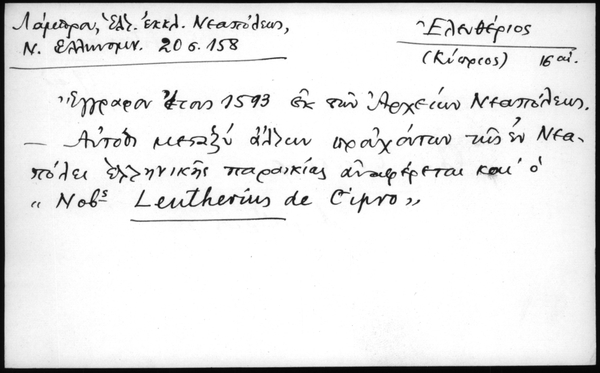 Λάμπρου, Ἑλλ. ἐκκλ. Νεαπόλεως,
Ν. Ἑλληνομν. 20 σ. 158
Ἐλευθέριος
(Κύπριος) 16 αἰ.
Ἔγγραφον ἔτους 1593 ἐκ τῶν Ἀρχείων Νεαπόλεως.
— Αὐτόθι μεταξὺ ἄλλων προὐχόντων τῆς ἐν Νεα-
πόλει ἑλληνικῆς παροικίας ἀναφέρεται καὶ ὁ
" Nobˢ Leutherius de Cipro "